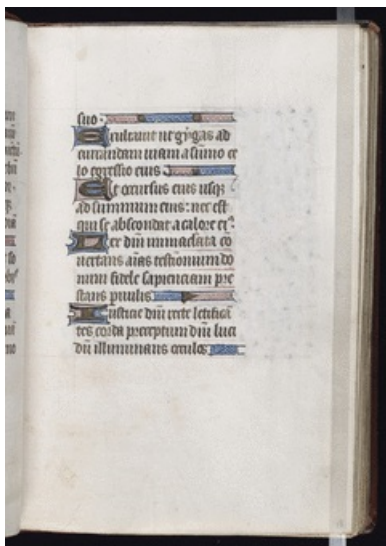 suo.
Exultauit ut gygas ad
currendam uiam a sūmo ce
lo egressio eius
Et occursus eius usqꝫ
ad summum eius: nec est
qui se abscondat a calore eiꝰ.
Lex dn̄i immaculata cō
uertens aīas testimonium do
mini fidele sapienciam pre
stans paruulis
Iusticie dn̄i recte letificā
tes corda preceptum dn̄i luci
dū illuminans oculos